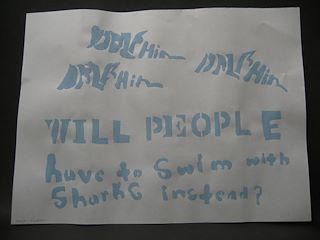 DOLPHin
DOLPHin DOLPHin
WILL PEOPLE
have to swim with
Sharks instead?